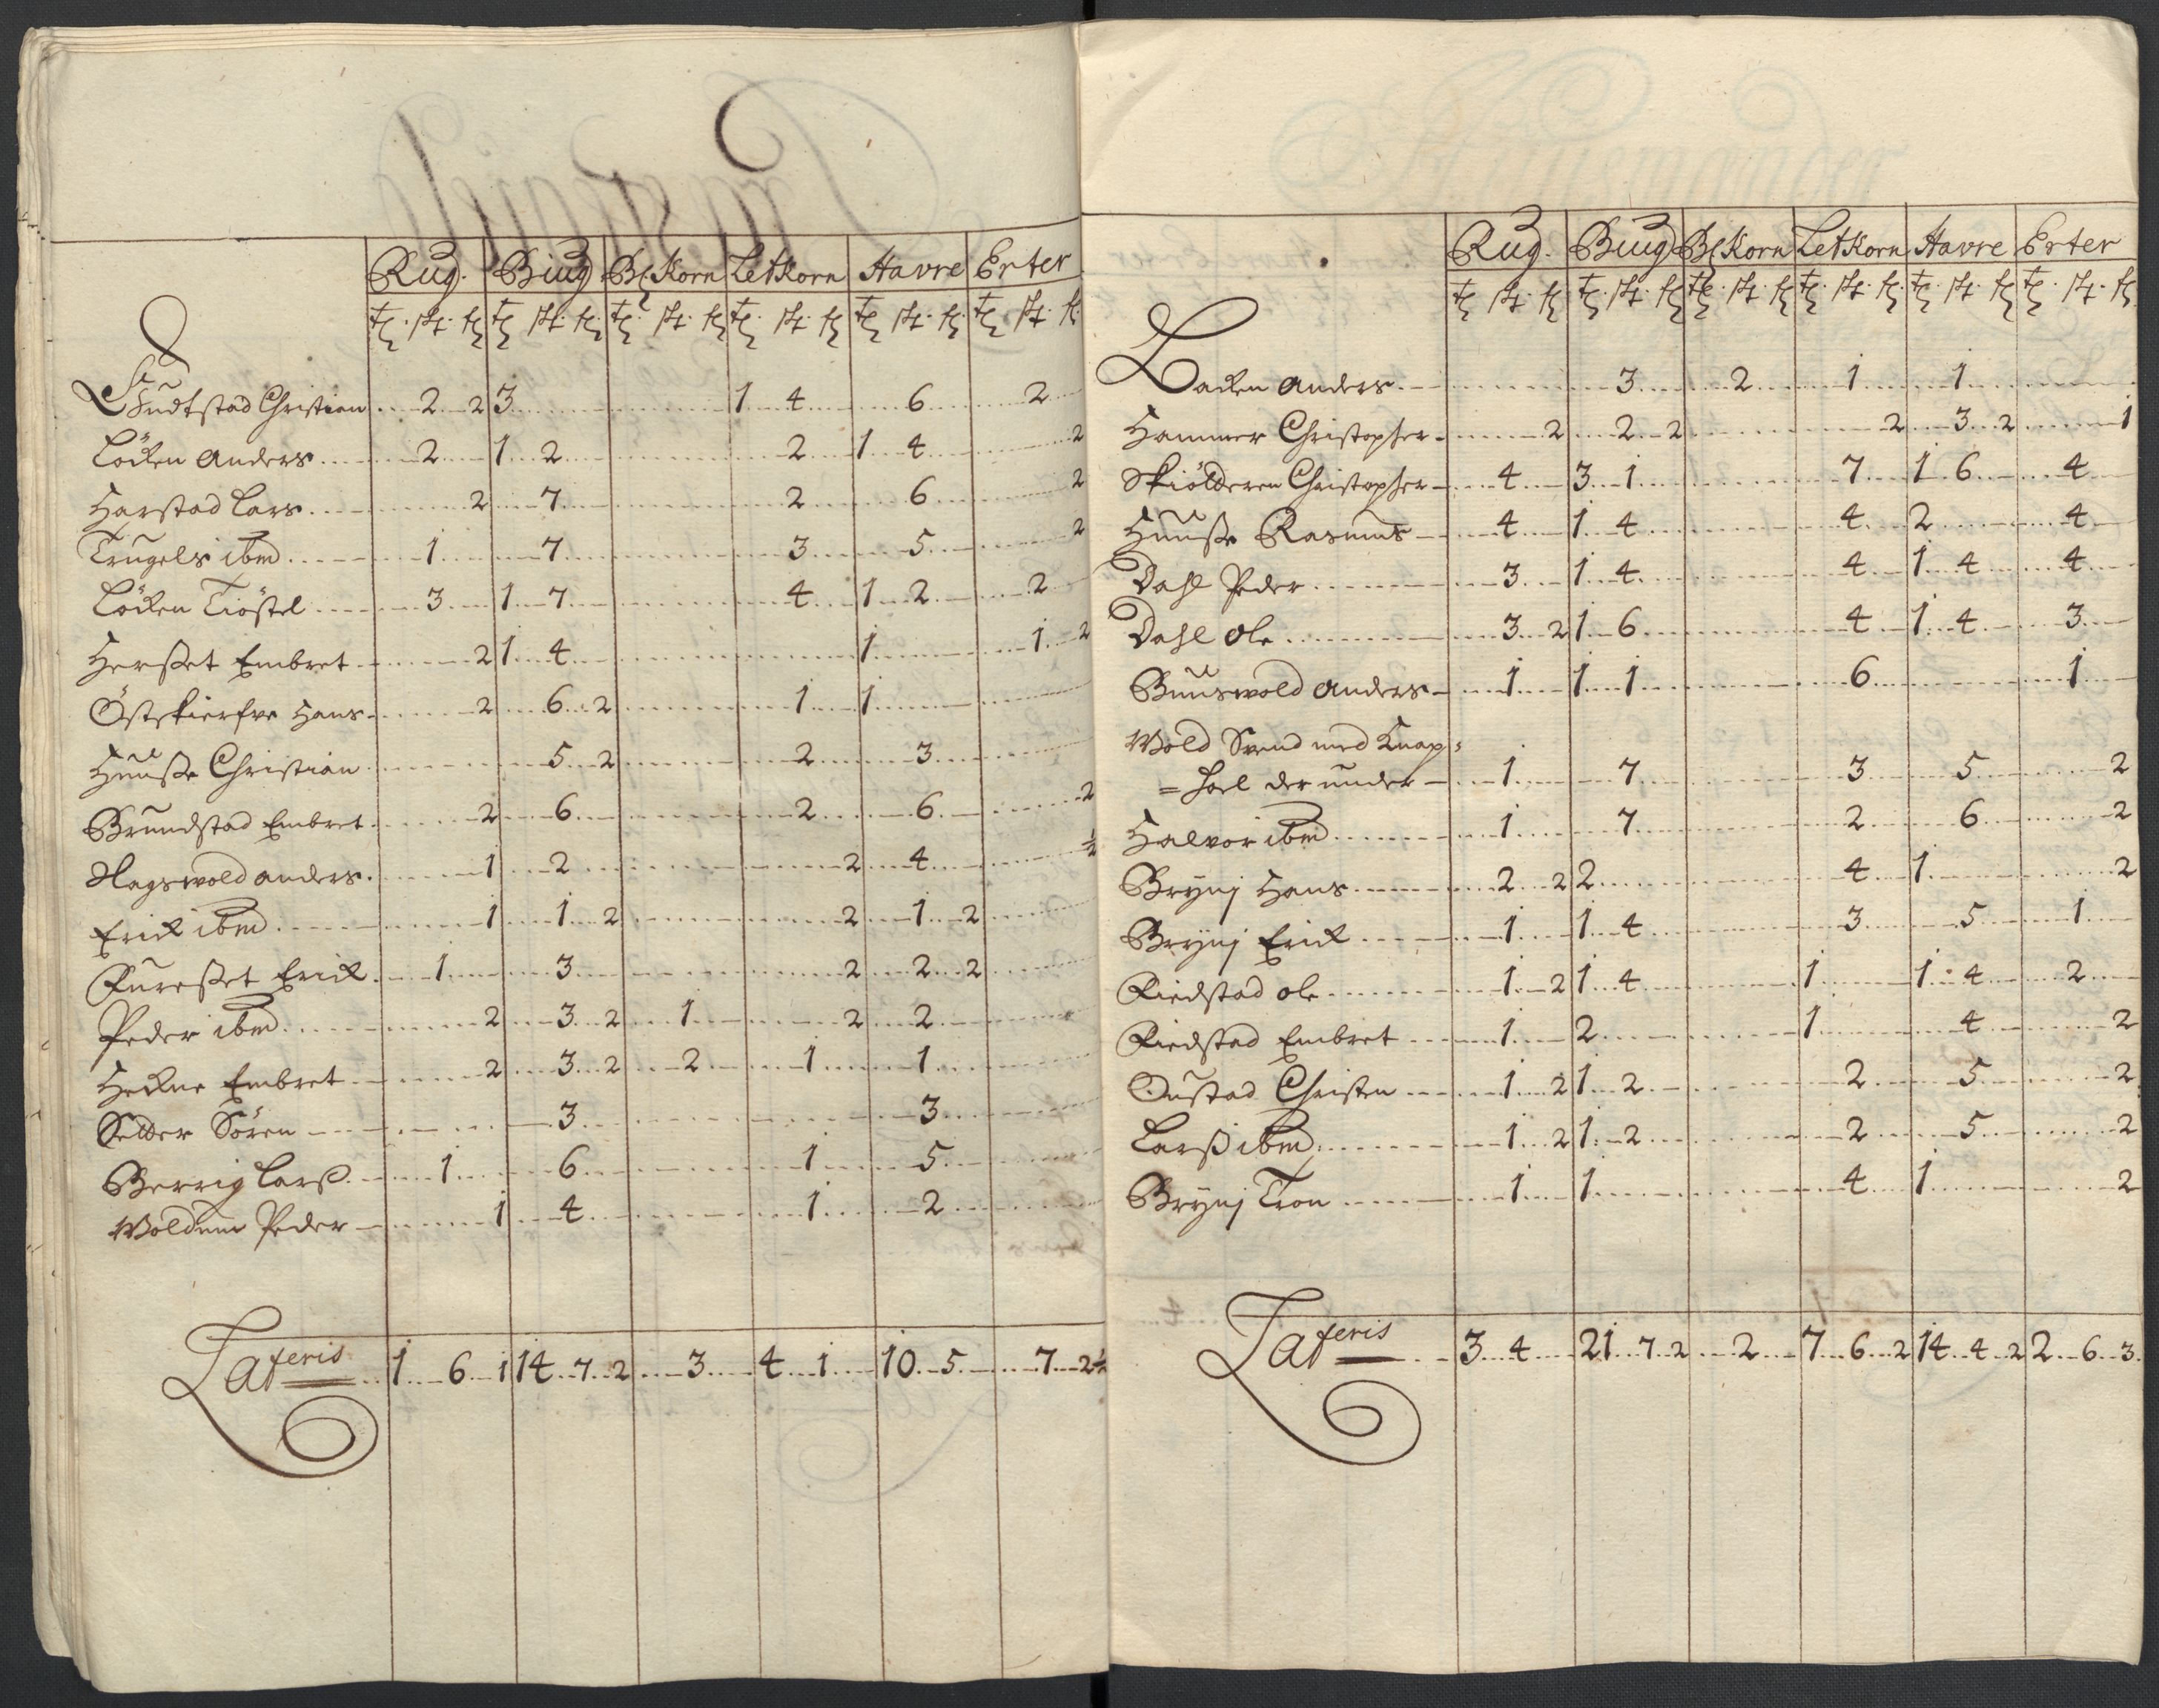 Rug. Biug Bl Korn Let Korn Havre Erter
tr. sk. f. tr. sk. f. tr. sk. f. tr. sk. f. tr. sk. f. tr. sk. f.
Christian .. 2 .. 2 3 .. 1 .. 4 .. 6 .. 2
Löcken Anders .. 2 .. 1 .. 2 .. 2 .. 1 .. 4 .. 2
Harstad Lars .. 2 .. 7 .. 2 .. 6 .. 2
Trugels ibm .. 1 .. 7 .. 3 .. 5 .. 2
Löcken Tiöstel .. 3 .. 1 .. 7 .. 4 .. 1 .. 2 .. 2
Herset Embret .. 2 1 .. 4 .. 1 .. 1 .. 2
Östskierfve Hans .. 2 .. 6 .. 2 .. 1 .. 1
Huuse Christian .. 5 .. 2 .. 2 .. 3
Brundstad Embret .. 2 .. 6 .. 2 .. 6 .. 2
Hagswold anders .. 1 .. 2 .. 2 .. 4 .. ½
Erick ibm .. 1 .. 1 .. 2 .. 2 .. 1 .. 2
Fureset Erick .. 1 .. 3 .. 2 .. 2 .. 2
Peder ibm .. 2 .. 3 .. 2 .. 1 .. 2 .. 2
Embret .. 2 .. 3 .. 2 .. 2 .. 1 .. 1
Sören .. 3 .. 3
Berrig Larß .. 1 .. 6 .. 1 .. 5
Peder .. 1 .. 4 .. 1 .. 2
Lateris .. 1 .. 6 .. 1 14 .. 7 .. 2 .. 3 .. 4 .. 1 .. 10 .. 5 .. 7 .. 2½
Rug. Biug Bl Korn Let Korn Havre Erter
tr. sk. f. tr. sk. f. tr. sk. f. tr. sk. f. tr. sk. f. tr. sk. f.
Backen Anders .. 3 .. 2 .. 1 .. 1
Hammer Christopher .. 2 .. 2 .. 2 .. 2 .. 3 .. 2 .. 1
Skiölderen Christopher .. 4 .. 3 .. 1 .. 7 .. 1 .. 6 .. 4
Huuse Rasmus .. 4 .. 1 .. 4 .. 4 .. 2 .. 4
Dahl Peder .. 3 .. 1 .. 4 .. 4 .. 1 .. 4 .. 4
Dahl Ole .. 3 .. 2 1 .. 6 .. 4 .. 1 .. 4 .. 3
Buuswold Anders .. 1 .. 1 .. 1 .. 6 .. 1
Wold Svend med Knap=
=hoel der under .. 1 .. 7 .. 3 .. 5 .. 2
Halvor ibm .. 1 .. 7 .. 2 .. 6 .. 2
Brynj Hans .. 2 .. 2 2 .. 4 .. 1 .. 2
Brynj Erick .. 1 .. 1 .. 4 .. 3 .. 5 .. 1
Fiedstad Ole .. 1 .. 2 1 .. 4 .. 1 .. 1 .. 4 .. 2
Fiedstad Embret .. 1 .. 2 .. 1 .. 4 .. 2
Oustad Christen .. 1 .. 2 1 .. 2 .. 2 .. 5 .. 2
Larß ibm .. 1 .. 2 1 .. 2 .. 2 .. 5 .. 2
Brynj Tron .. 1 .. 1 .. 4 .. 1 .. 2
Lateris .. 3 .. 4 .. 21 .. 7 .. 2 .. 2 .. 7 .. 6 .. 2 14 .. 4 .. 2 2 .. 6 .. 3